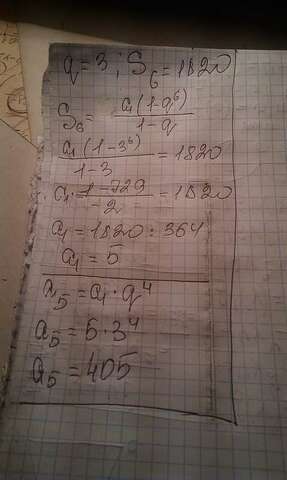 q = 3; S₆ = 1820
S₆ = a₁(1-q⁶) / 1-q
a₁(1-3⁶) / 1-3 = 1820
a₁ · 1-729 / -2 = 1820
a₁ = 1820 : 364
a₁ = 5
a₅ = a₁ · q⁴
a₅ = 5 · 3⁴
a₅ = 405